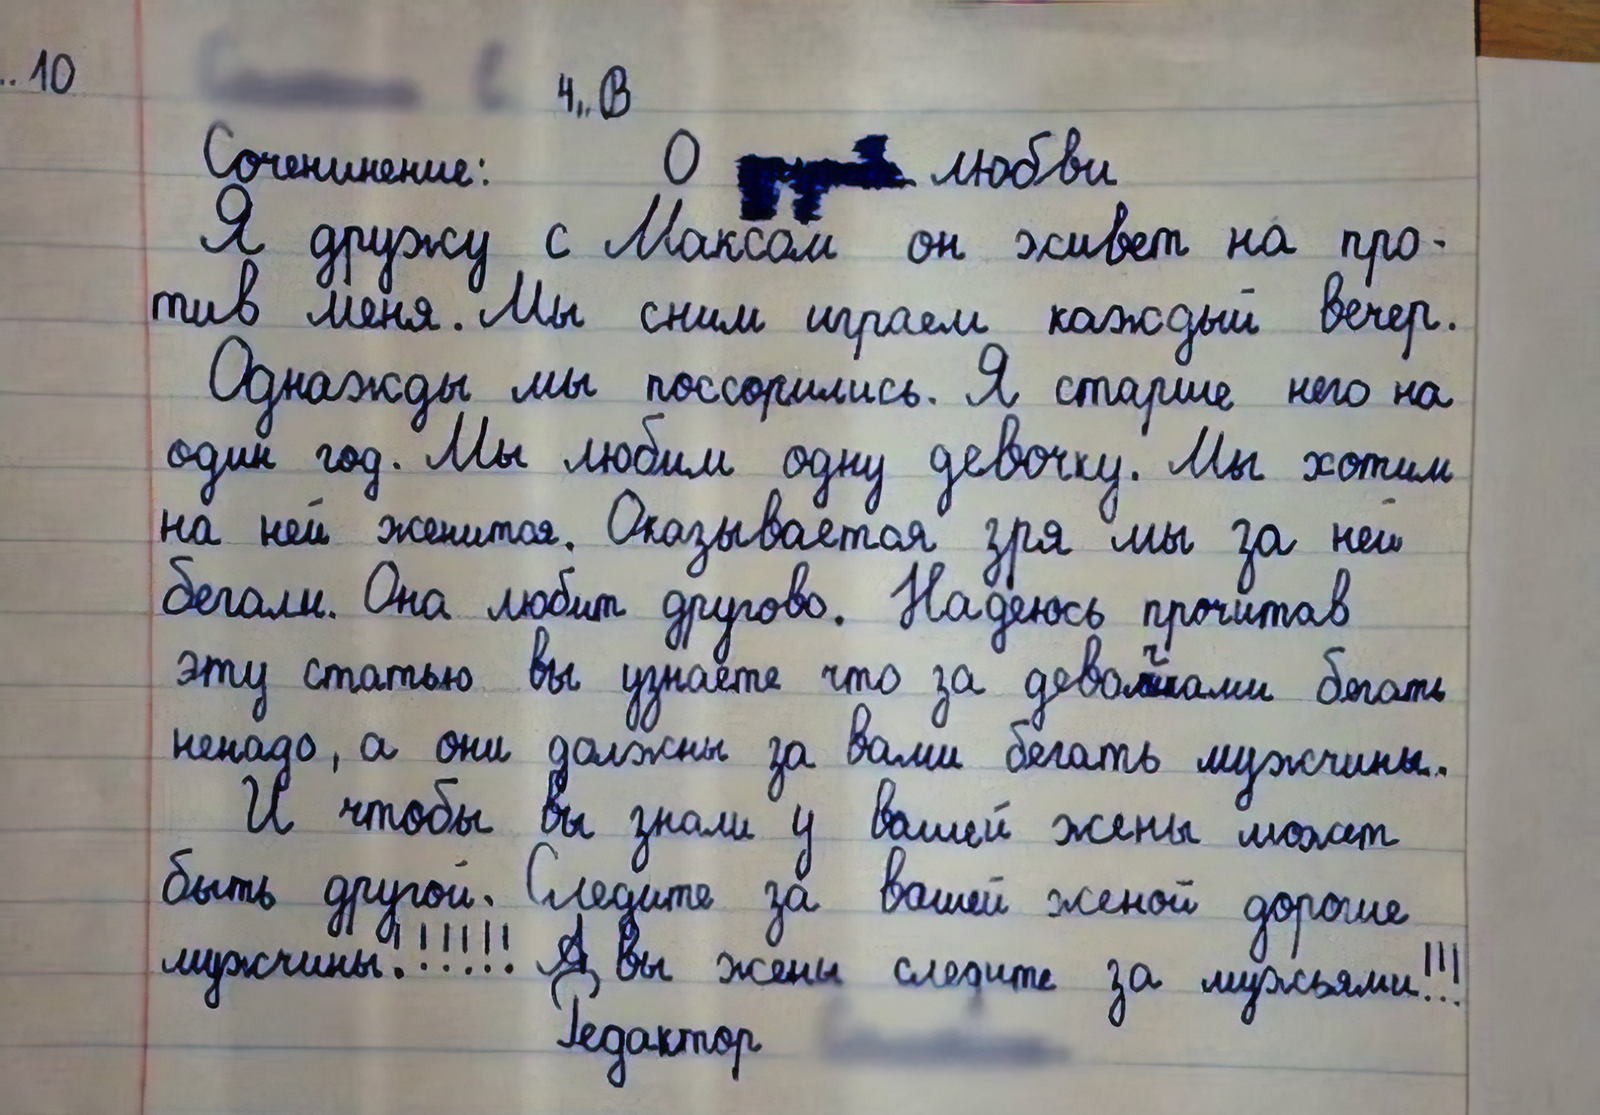 ..10
4„В
Соченинение: О любви
Я дружу с Максом он живет на про-
тив меня. Мы сним играем каждый вечер.
Однажды мы поссорились. Я старше него на
один год. Мы любим одну девочку. Мы хотим
на ней женится. Оказывается зря мы за ней
бегали. Она любит другово. Надеюсь прочитав
эту статью вы узнаете что за девочками бегать
ненадо, а они должны за вами бегать мужчины..
И чтобы вы знали у вашей жены может
быть другой. Следите за вашей женой дороше
мужчины!!!!!! А вы жены следите за мужьями!!!
Редактор